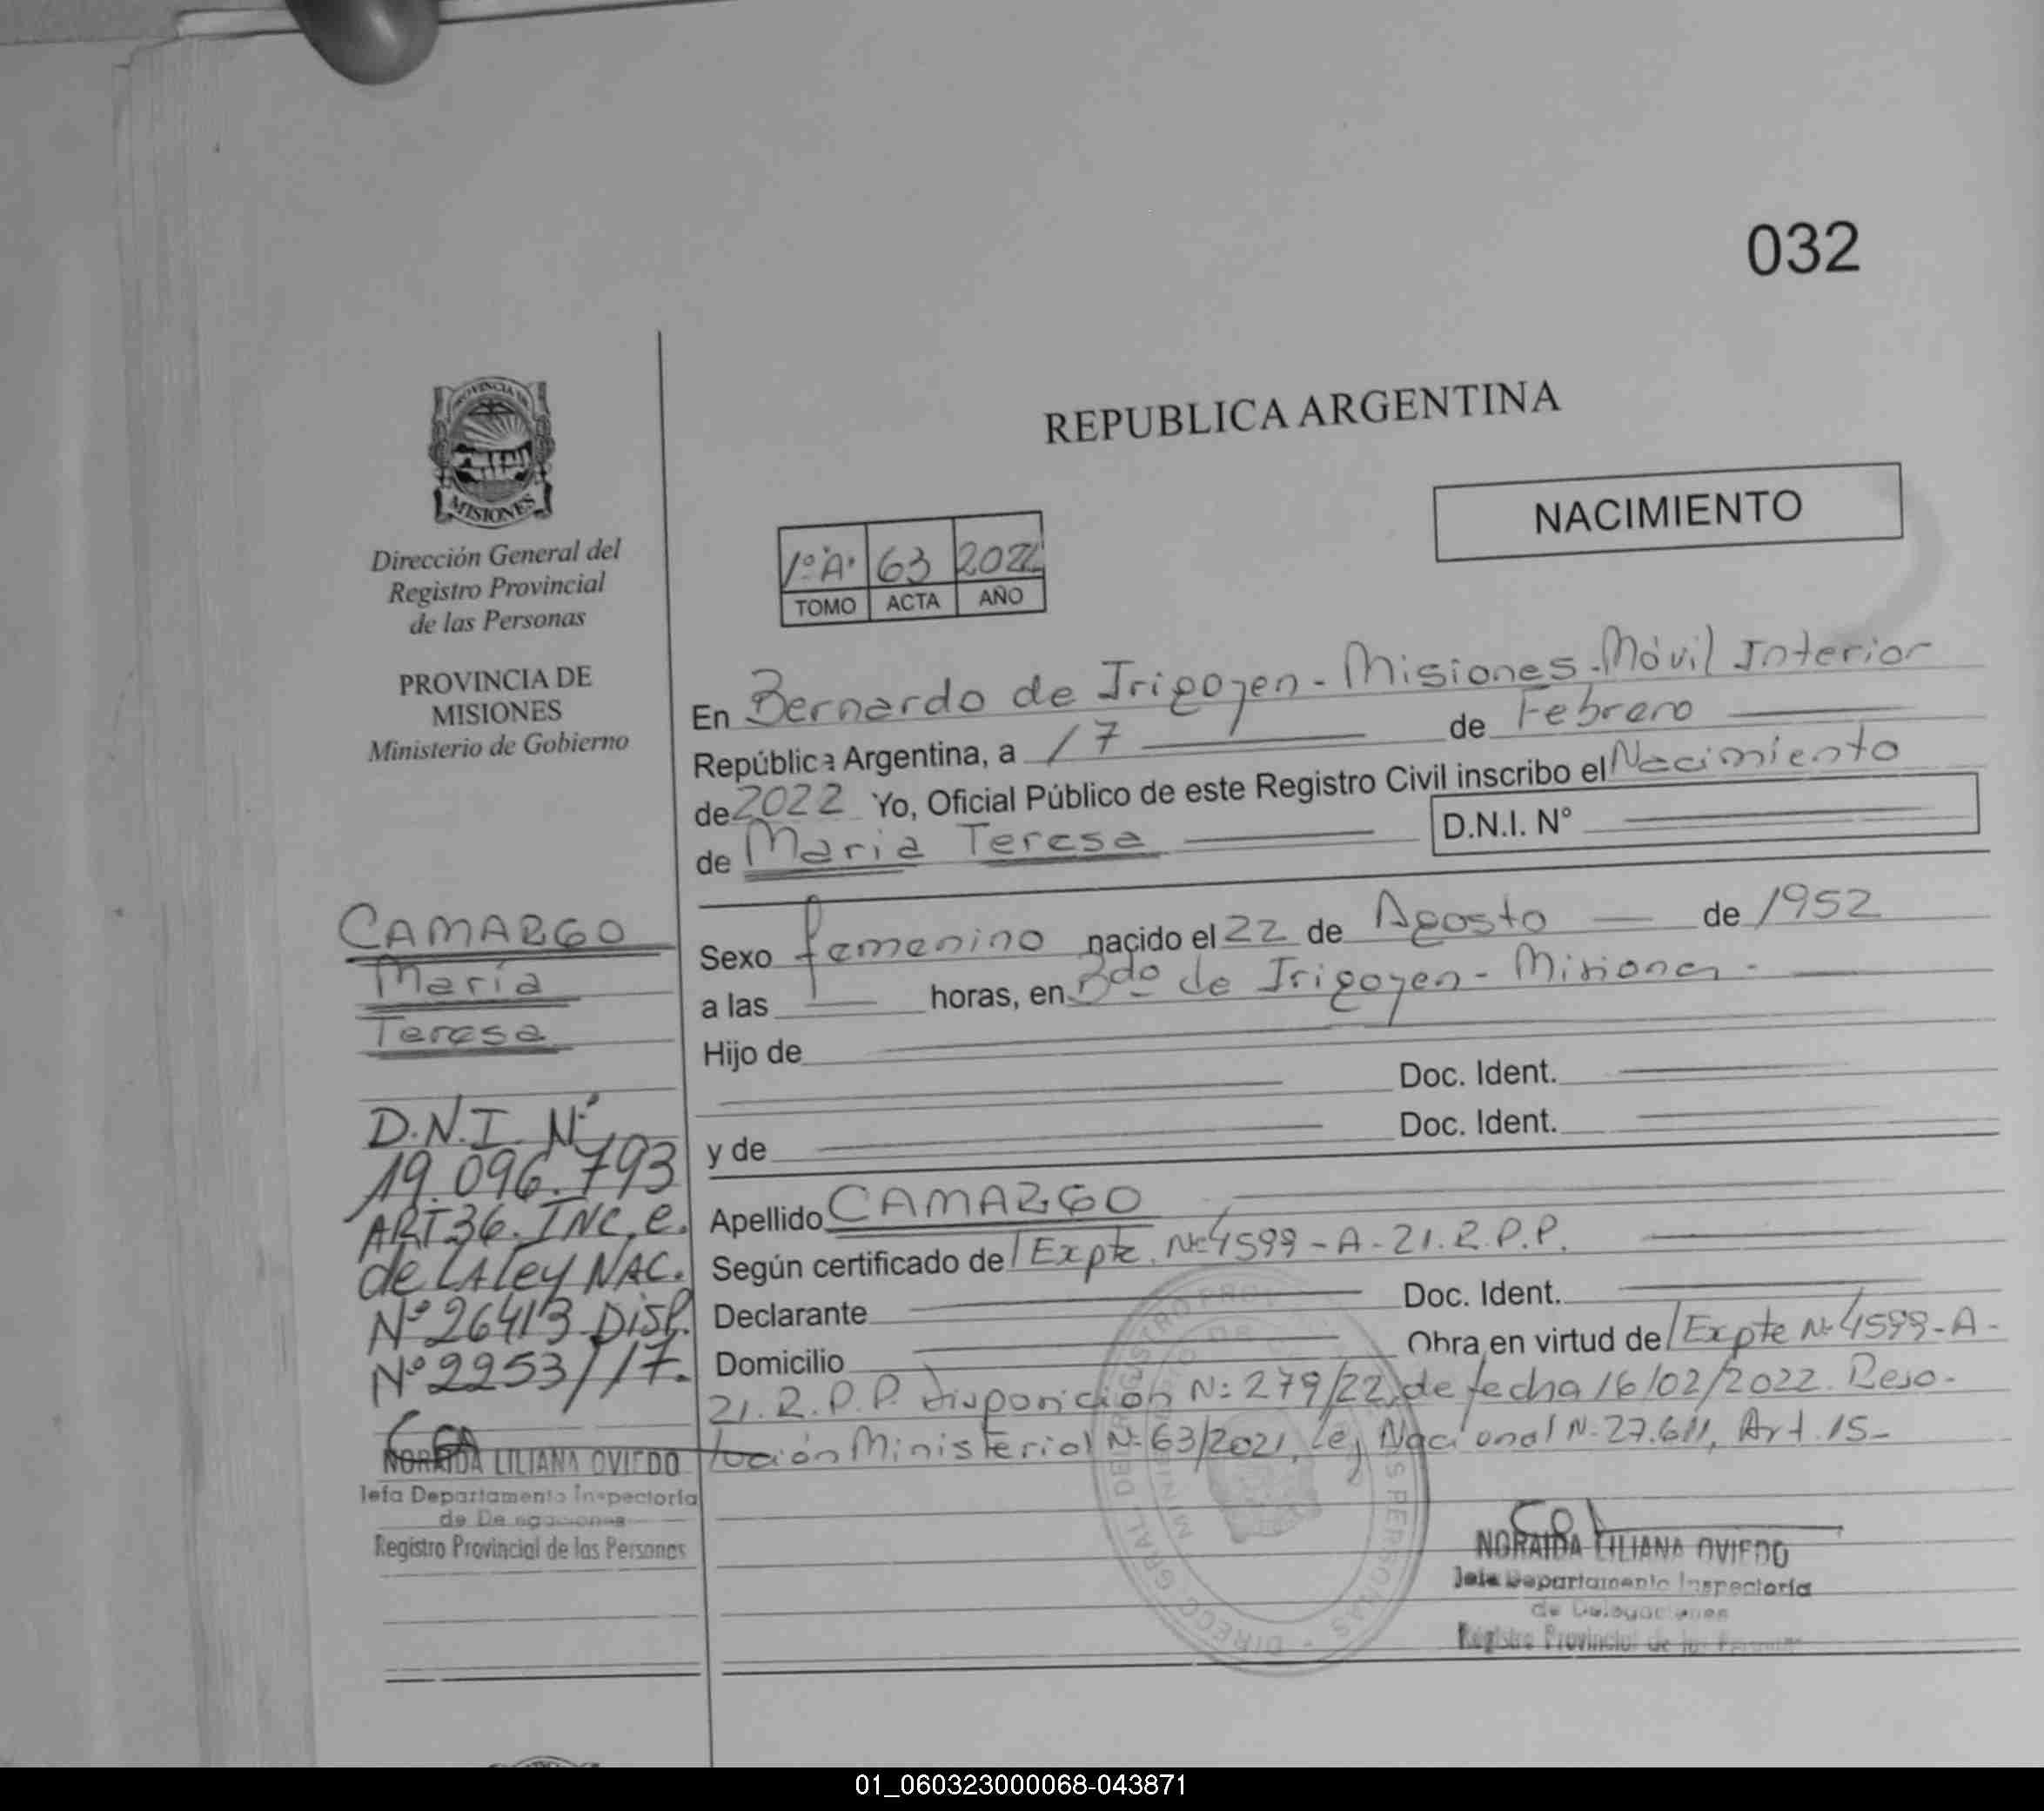 032
REPUBLICA ARGENTINA
NACIMIENTO
PROVINCIA DE
MISIONES
Dirección General del
Registro Provincial
de las Personas
PROVINCIA DE
MISIONES
Ministerio de Gobierno
1º "A" 63 2022
TOMO ACTA AÑO
En Bernardo de Irigoyen - Misiones - Móvil Interior
República Argentina, a 17 de Febrero
de 2022 Yo, Oficial Público de este Registro Civil inscribo el Nacimiento
de Maria Teresa D.N.I. Nº
Sexo femenino nacido el 22 de Agosto de 1952
a las horas, en Bdo de Irigoyen - Misiones -
Hijo de
Doc. Ident.
y de Doc. Ident.
Apellido CAMARGO
Según certificado de Expte. Nº 4599 - A - 21. R.P.P.
Declarante Doc. Ident.
Domicilio Obra en virtud de Expte Nº 4599 - A -
21. R.P.P. Disposición Nº 279/22, de fecha 16/02/2022. Reso-
lución Ministerial Nº 63/2021, Ley Nacional Nº 27.611, Art. 15-
CAMARGO
María
Teresa
D.N.I. Nº
19.096.793
ART 36. INC. e.
de LA ley NAC.
Nº 26413 DISP.
Nº 2253/17.
NORAIDA LILIANA OVIEDO
Jefa Departamento Inspectoría
de Delegaciones
Registro Provincial de las Personas
NORAIDA LILIANA OVIEDO
Jefa Departamento Inspectoría
de Delegaciones
Registro Provincial de las Personas
01_060323000068-043871